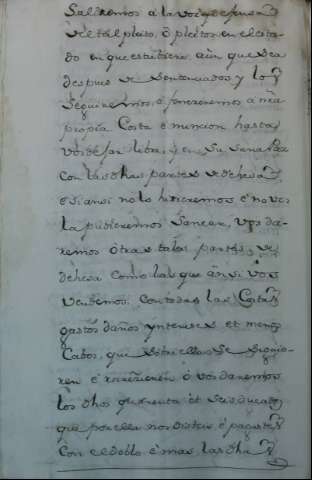 Saldremos a la voz y defensa
de tal pleito, o pleitos en el esta
do en que estubiere, aun que sea
despues de sentenciados, y los
seguiremos, o feneceremos a nra
propia Costa e mincion hasta
vos dejar libre, y en su sana paz
con las dhas partes de dehesa
e si ansi no lo hicieremos e no vos
la pudieremos sanear, vos da-
remos otras tales partes de
dehesa como las que ansi vos
vendemos, con todas las Costas
gastos daños yntereses et menos
Cabos, que sobre ellas se siguie-
ren e recrecieren o vos daremos
los dhos quarenta et seis ducados
que por ella nos disteis e pagastes
con el doblo e mas las dhas